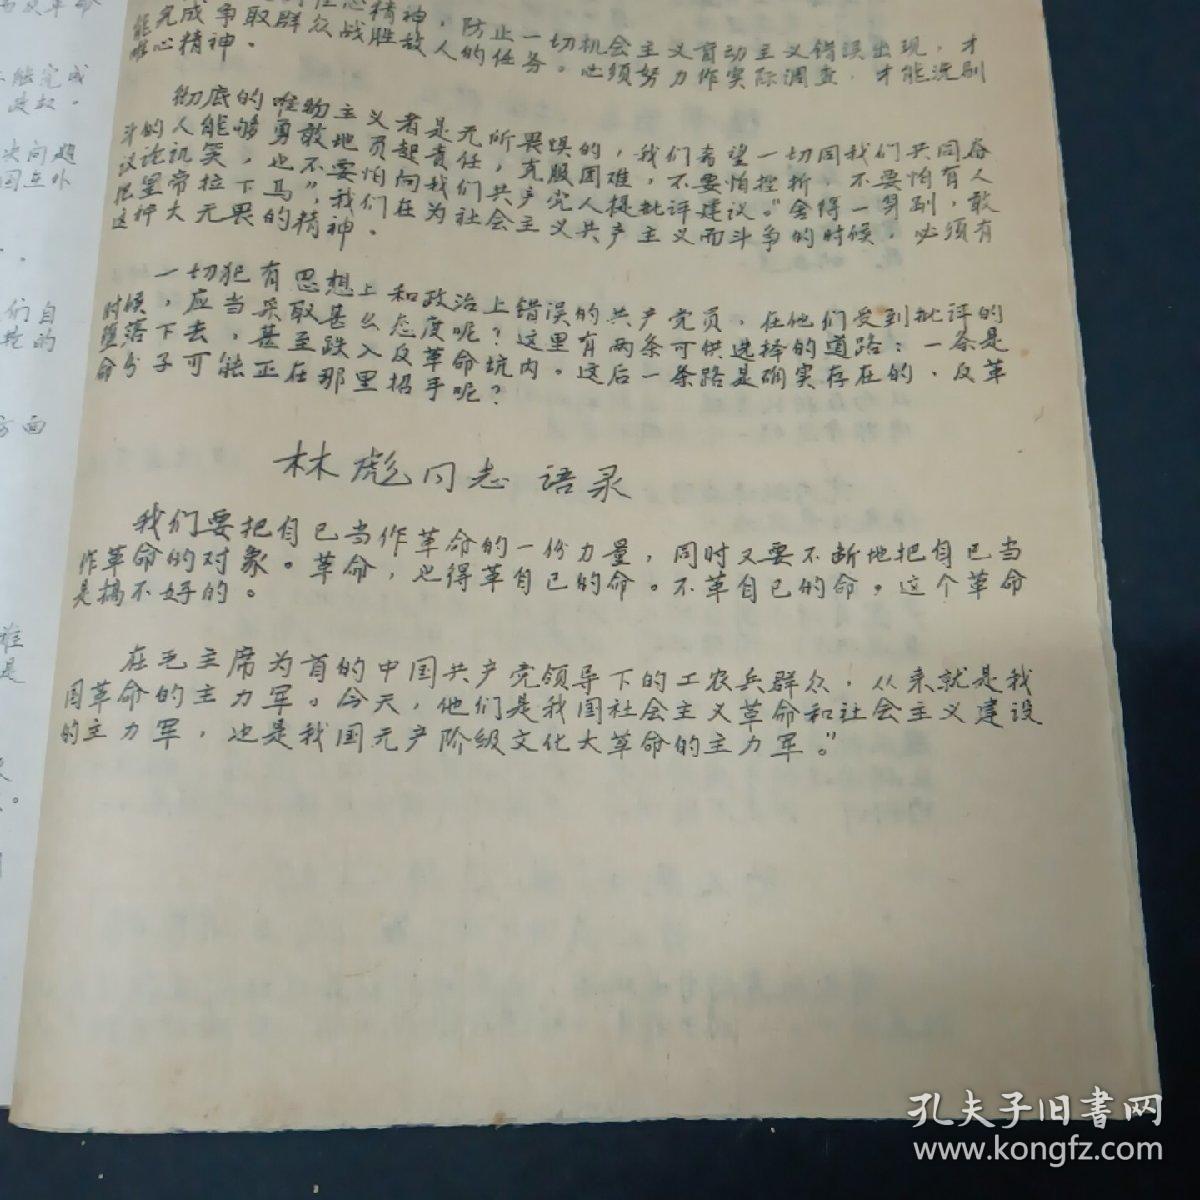 能完成争取群众战胜敌人的任务。必须努力作实际调查，才能洗刷
唯心精神。
精神，防止一切机会主义盲动主义错误出现，才
彻底的唯物主义者是无所畏惧的，我们希望一切同我们共同奋
斗的人能够勇敢地负起责任，克服困难，不要怕挫折，不要怕有人
议论讥笑，也不要怕向我们共产党人提批评建议。“舍得一身剐，敢
把皇帝拉下马”，我们在为社会主义共产主义而斗争的时候，必须有
这种大无畏的精神。
一切犯有思想上和政治上错误的共产党员，在他们受到批评的
时候，应当采取甚么态度呢？这里有两条可供选择的道路：一条是
堕落下去，甚至跌入反革命坑内。这后一条路是确实存在的，反革
命分子可能正在那里招手呢？
林彪同志语录
我们要把自己当作革命的一份力量，同时又要不断地把自己当
作革命的对象。革命，也得革自己的命。不革自己的命，这个革命
是搞不好的。
在毛主席为首的中国共产党领导下的工农兵群众，从来就是我
国革命的主力军。今天，他们是我国社会主义革命和社会主义建设
的主力军，也是我国无产阶级文化大革命的主力军。”
能完成
政权。
决问题
们自
方面
谁
是
孔夫子旧書网
www.kongfz.com